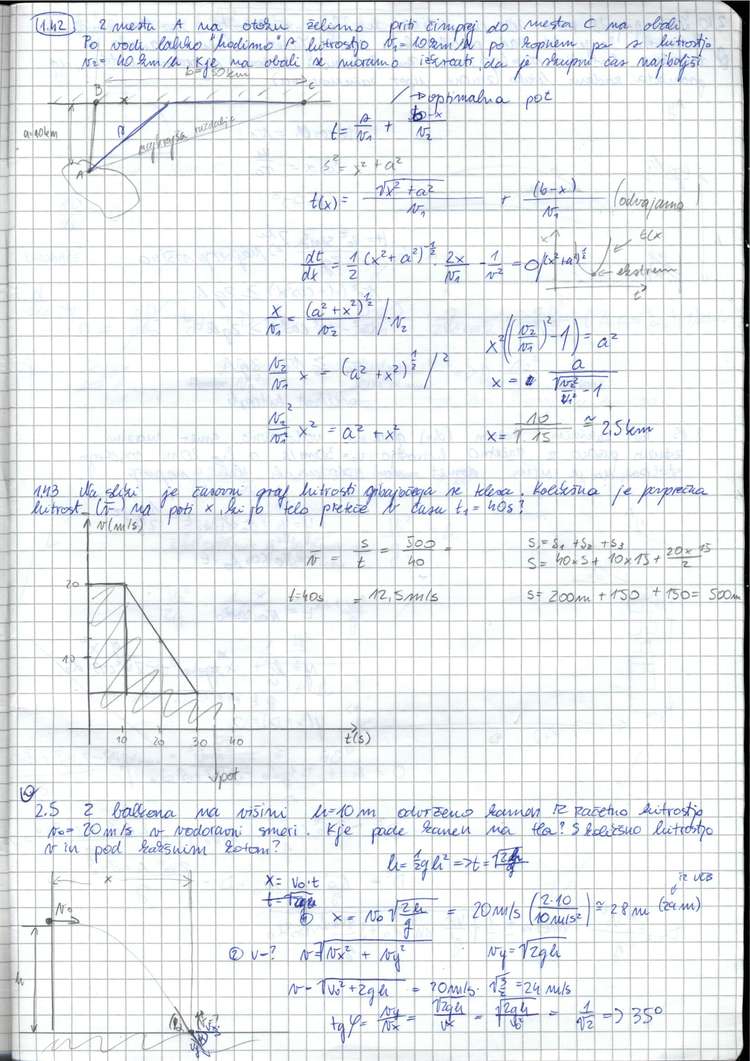 1.42 Z mesta A na otoku želimo priti čimprej do mesta C na obali.
Po vodi lahko "hodimo" s hitrostjo v₁=10km/h po kopnem pa s hitrostjo
v₂=40km/h. Kje na obali se moramo izkrcati, da je skupni čas najboljši
b=50km
B x C
a=10km
A s najkrajša razdalja
→ optimalna pot
t = s/v₁ + (b-x)/v₂
s² = x² + a²
t(x) = √(x²+a²)/v₁ + (b-x)/v₁ (odvajamo)
dt/dx = 1/2 (x²+a²)^(-1/2) · 2x/v₁ - 1/v² = 0 /(x²+a²)^(1/2)
t(x
← ekstrem
x/v₁ = (a²+x²)^(1/2)/v₂ /·v₂
v₂/v₁ x = (a²+x²)^(1/2) /²
v₂²/v₁² x² = a² + x²
x²((v₂/v₁)² - 1) = a²
x = a/√(v₂²/v₁² - 1)
x = 10/√15 ≅ 2,5km
1.43 Na sliki je časovni graf hitrosti gibajočega se telesa. Kolikšna je povprečna
hitrost (v̄) na poti x, ki jo telo preteče v času t₁=40s?
v(m/s)
20
10
10 20 30 40 t(s)
pot
v̄ = s/t = 500/40 =
t=40s = 12,5m/s
s = s₁ + s₂ + s₃
s = 40×5 + 10×15 + 20×15/2
s = 200m + 150 + 150 = 500m
2.5 Z balkona na višini h=10m odvržemo kamen z začetno hitrostjo
v₀=20m/s v vodoravni smeri. Kje pade kamen na tla? S kolikšno hitrostjo
v in pod kakšnim kotom?
h = 1/2 gh² => t = √(2h/g)
x
v₀
h
x = v₀·t
① x = v₀ √(2h/g) = 20m/s (2·10/10m/s²) ≅ 28m
② v-? v = √(vx² + vy²) vy = √2gh
v - √(v₀²+2gh) = 20m/s · √(3/2) = 24 m/s
tgφ = vy/vx = √2gh/vx = √(2gh/v₀²) = 1/√2 => 35°